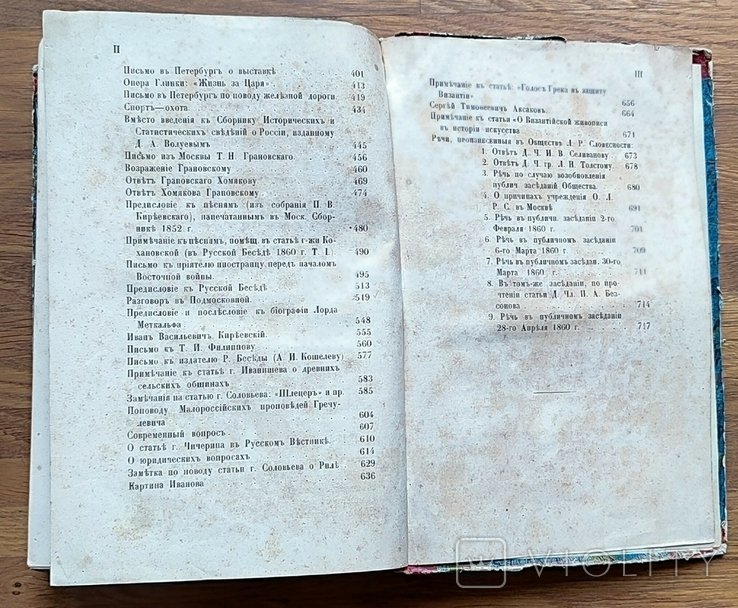 II
Письмо въ Петербургъ о выставкѣ 401
Опера Глинки: «Жизнь за Царя». 413
Письмо въ Петербургъ по поводу желѣзной дороги 419
Спортъ—охота 434
Вмѣсто введенія къ Сборнику Историческихъ и
Статистическихъ свѣдѣній о Россіи, изданному
Д. А. Волуевымъ 445
Письмо изъ Москвы Т. Н. Грановскаго 456
Возраженіе Грановскому 460
Отвѣтъ Грановскаго Хомякову 469
Отвѣтъ Хомякова Грановскому 474
Предисловіе къ пѣснямъ (изъ собранія П. В.
Кирѣевскаго), напечатаннымъ въ Моск. Сбор-
никѣ 1852 г. 480
Примѣчаніе къ пѣснямъ, помѣщ. въ статьѣ г-жи Ко-
хановской (въ Русской Бесѣдѣ 1860 г. Т. I. 490
Письмо къ пріятелю иностранцу передъ началомъ
Восточной войны. 495
Предисловіе къ Русской Бесѣдѣ 513
Разговоръ въ Подмосковной. 519
Предисловіе и послѣсловіе къ біографіи Лорда
Меткальфа 548
Иванъ Васильевичъ Кирѣевскій. 555
Письмо къ Т. И. Филиппову 560
Письмо къ издателю Р. Бесѣды (А. И. Кошелеву) 577
Примѣчаніе къ статьѣ г. Иванишева о древнихъ
сельскихъ общинахъ 583
Замѣчанія на статью г. Соловьева: «Шлецеръ» и пр. 585
Поповоду Малороссійскихъ проповѣдей Гречу-
левича 604
Современный вопросъ 607
О статьѣ г. Чичерина въ Русскомъ Вѣстникѣ. 610
О юридическихъ вопросахъ 614
Замѣтка по поводу статьи г. Соловьева о Рилѣ 629
Картина Иванова 636
III
Примѣчаніе къ статьѣ: «Голосъ Грека въ защиту
Византіи» 656
Сергѣй Тимоѳеевичъ Аксаковъ. 664
Примѣчаніе къ статьи «О Византійской живописи
въ исторіи искусства 671
Рѣчи, произнесенныя въ Обществѣ Л. Р. Словесности:
1. Отвѣтъ Д. Ч. И. В. Селиванову 673
2. Отвѣтъ Д. Ч. гр. Л. Н. Толстому 678
3. Рѣчь по случаю возобновленія
публич. засѣданій Общества. 680
4. О причинахъ учрежденія О. Л.
Р. С. въ Москвѣ 691
5. Рѣчь въ публичн. засѣданіи 2-го
Февраля 1860 г. 701
6. Рѣчь въ публичномъ засѣданіи
6-го Марта 1860 г. 709
7. Рѣчь въ публичном засѣдан. 30-го
Марта 1860 г. 711
8. Въ томъ-же засѣданіи, по про-
чтеніи статьи Д. Чл. П. А. Без-
сонова 714
9. Рѣчь въ публичномъ засѣданіи
28-го Апрѣля 1860 г. 717
VIOLITY